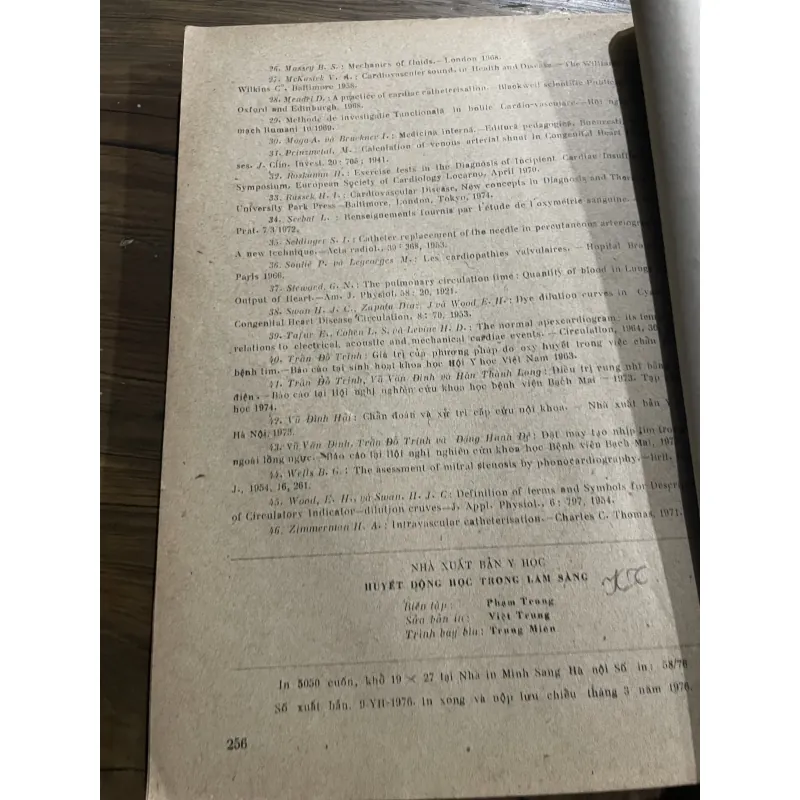 26. Massey B. S. : Mechanics of fluids.— London 1968.
27. McKusick V. A. : Cardiovascular sound. in Health and Disease —The William
Wilkins C°. Baltimore 1958.
28. Mendel D. : A practice of cardiac catheterisation.— Blackwell scientific Publicat
Oxford and Edinburgh, 1968.
29. Méthode de investigatie
mach Rumani 10/1969.
30. Moga A. và Bruckner I. : Medicina interna.—Editura pedagogica, Bucuresti
31. Prinzmetal, M. : Calculation of venous arterial shunt in Congenital Heart
ses. J. Clin. Invest. 20 : 705 ; 1941.
32. Roskamm H. : Exercise tests in the Diagnosis of Incipient Cardiac Insuff
Symposium, European Society of Cardiology Locarno, April 1970.
33. Russek H. I. : Cardiovascular Disease, New concepts in Diagnosis and Thera
University Park Press —Baltimore, London, Tokyo, 1974.
34. Seebat L. : Renseignements fournis par l'étude de l'oxymétrie sanguine. —
Prat. 7/3/1972.
35. Seldinger S. I. : Catheter replacement of the needle in percutaneous arteriogr
A new technique.—Acta radiol., 39 : 368, 1953.
36. Soulié P. và Legearges M. : Les cardiopathies valvulaires. — Hopital Brou
Paris 1966.
37. Steward, G. N. : The pulmonary circulation time : Quantity of blood in Lung
Output of Heart.—Am. J. Physiol. 58 : 20, 1921.
38. Swan H. J. C., Zapata Diaz, J và Wood E. H. : Dye dilution curves in Cya
Congenital Heart Disease Circulation, 8 : 70, 1953.
39. Tafur E., Cohen L. S. và Levine H. D. : The normal apexcardiogram : its tem
relations to electrical, acoustic and mechanical cardiac events. —Circulation, 1964, 30
40. Trần Đỗ Trinh : Giá trị của phương pháp đo oxy huyết trong việc chẩn
bệnh tim.—Báo cáo tại sinh hoạt khoa học Hội Y học Việt Nam 1963.
41. Trần Đỗ Trinh, Vũ Văn Đính và Hàn Thành Long : Điều trị rung nhĩ bằng
điện. —Báo cáo tại Hội nghị nghiên cứu khoa học bệnh viện Bạch Mai — 1973. Tạp
học 1974.
42. Vũ Đình Hải : Chẩn đoán và xử trí cấp cứu nội khoa. — Nhà xuất bản Y
Hà Nội, 1973.
43. Vũ Văn Đính, Trần Đỗ Trinh và Đặng Hanh Đệ : Đặt máy tạo nhịp tim tron
ngoài lồng ngực. —Báo cáo tại Hội nghị nghiên cứu khoa học Bệnh viện Bạch Mai, 197
44. Wells B. G. : The asessment of mitral stenosis by phonocardiography.—Brit.
J., 1954, 16, 261.
45. Wood, E. H., và Swan. H. J. C : Definition of terms and Symbols for Descr
of Circulatory Indicator—dilution cruves—J. Appl. Physiol., 6 : 797, 1954.
46. Zimmerman H. A. : Intravascular catheterisation.—Charles C. Thomas, 1971.
NHÀ XUẤT BẢN Y HỌC
HUYẾT ĐỘNG HỌC TRONG LÂM SÀNG
Biên tập : Phạm Trung
Sửa bản in : Việt Trung
Trình bày bìa : Trung Miên
In 5050 cuốn, khổ 19 × 27 tại Nhà in Minh Sang Hà nội Số in : 58/76
Số xuất bản. 9-YH-1976. In xong và nộp lưu chiểu tháng 3 năm 1976.
256